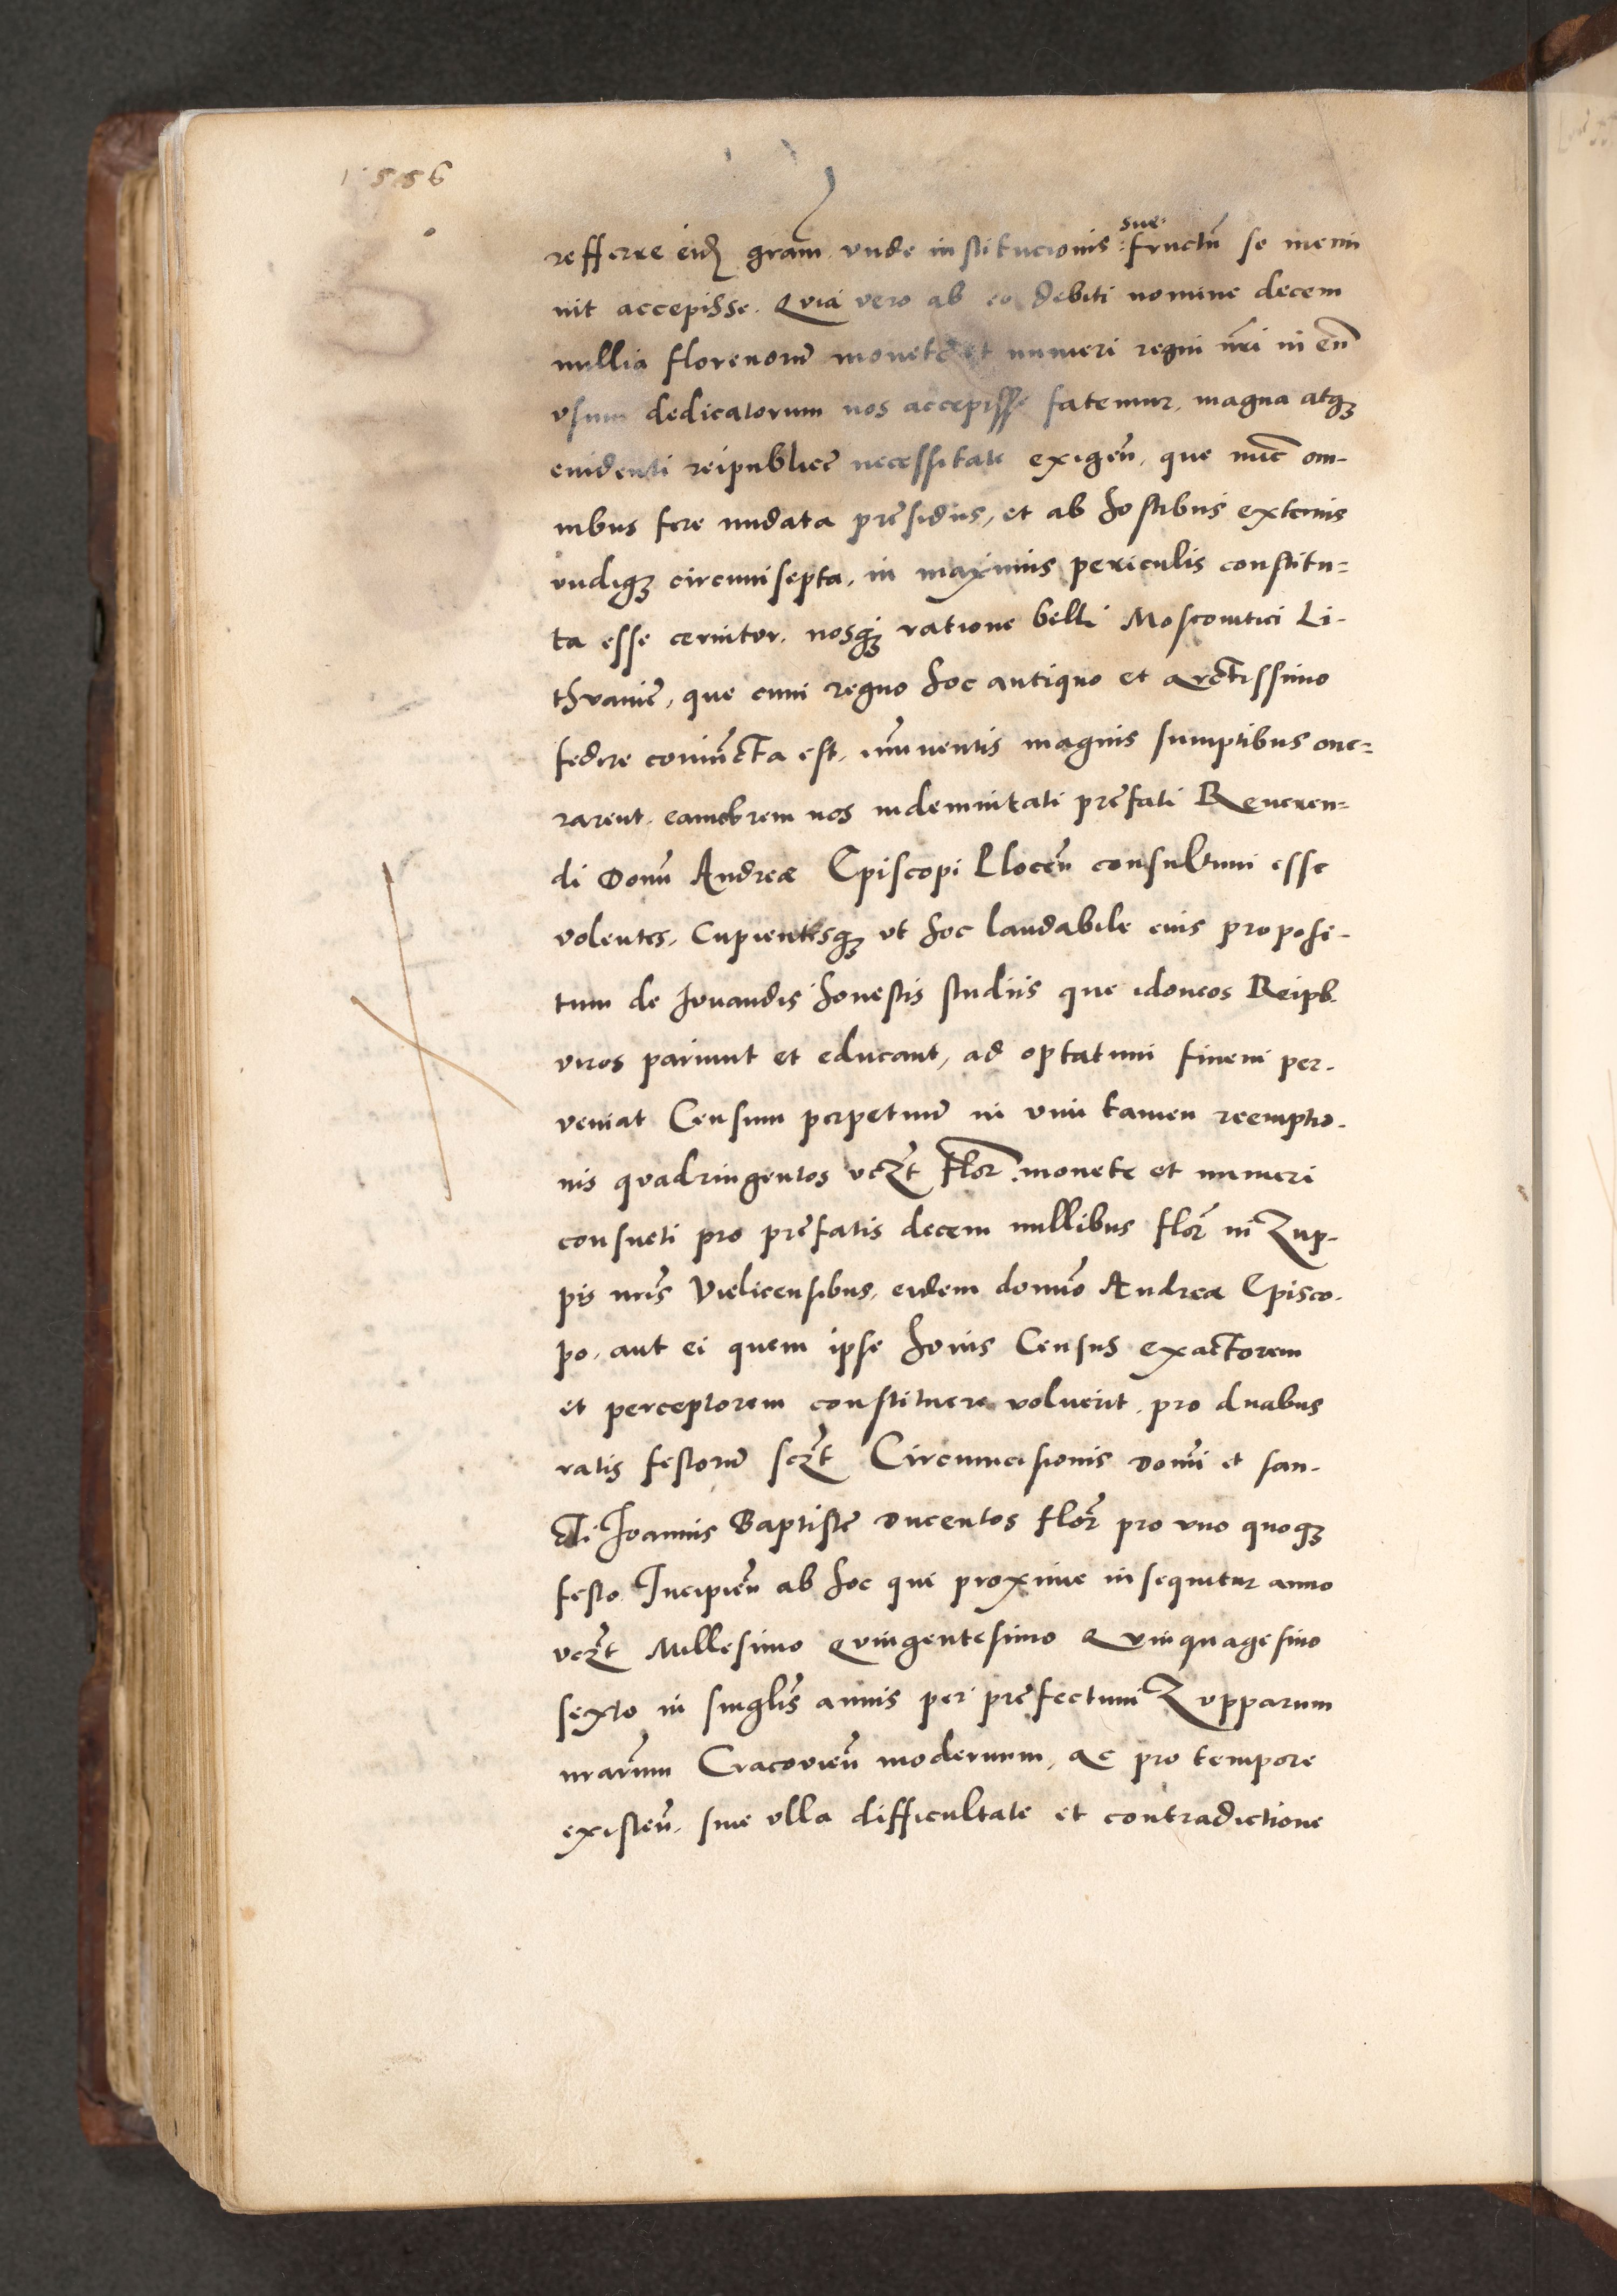 1556
sue
refferre eid gram unde institucionis fructu se memi
nit accepisse. Quia vero ab eo debiti nomine decem
millia florenoru monete et numeri regni nri in eu
usum dedicatorum nos accepisse fatemur, magna atq3
evidenti reipublice necessitate exigen, que nuc om-
nibus fere nudata presidiis, et ab hostibus externis
undiq3 circumsepta, in maximis periculis constitu=
ta esse cernitur. nosq3 ratione belli Moscovitici Li-
thvanie, que cum regno hoc antiquo et arctissimo
federe coniuncta est, imminentis magnis sumptibus one=
rarent, eamobrem nos indemnitati prefati Reveren=
di Domi Andreæ Episcopi Plocen consultum esse
volentes, Cupientesq3 ut hoc laudabile eius proposi-
tum de Iuvandis honestis studiis que idoneos Reipb.
viros pariunt et educant, ad optatum finem per-
veniat Censum perpetuu in vim tamen reemptio-
nis quadringentos vczt flor monete et numeri
consueti pro prefatis decem millibus flor in Zup-
pis nris Vielicensibus, eidem domino Andreæ Episco-
po, aut ei quem ipse huius Census exactorem
et perceptorem constituere voluerit, pro duabus
ratis festoru sczt Circumcisionis Domi et san-
cti Ioannis Baptiste Ducentos flor pro uno quoq3
festo Incipien ab hoc que proxime insequitur anno
vczt Millesimo Quingentesimo Quinquagesimo
sexto in singlis annis per prefectum Zupparum
nrarum Cracovien modernum, ac pro tempore
existen, sine ulla difficultate et contradictione